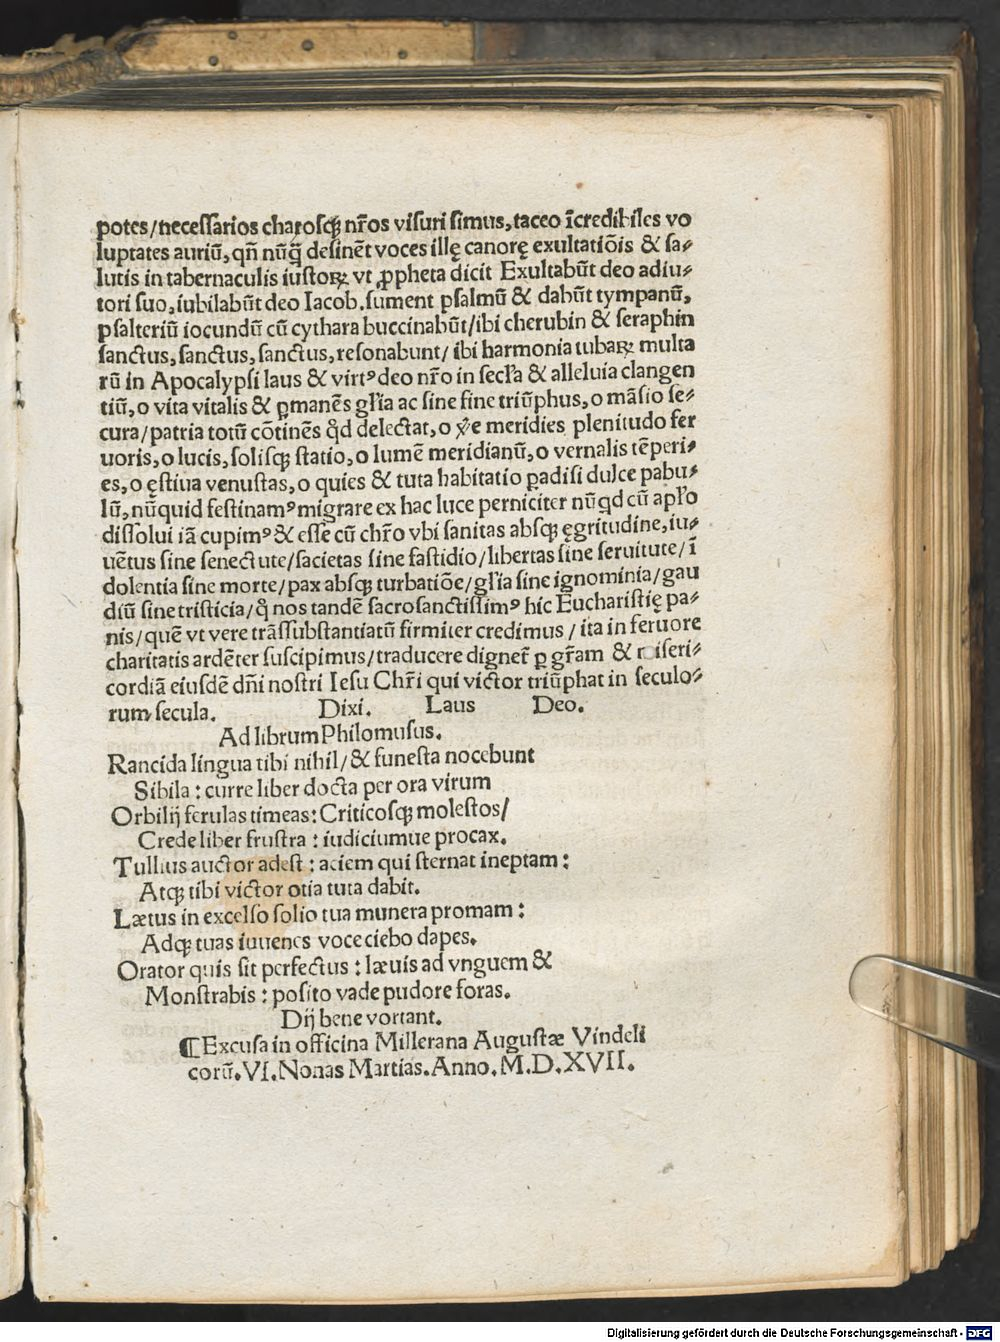 potes/necessarios charosqꝫ nr̄os visuri simus,taceo īcredibiles vo
luptates auriū,qn̄ nūq̄ desinēt voces illę canorę exultatiōis & sa⸗
lutis in tabernaculis iustoꝝ vt ꝓpheta dicit Exultabūt deo adiu⸗
tori suo,iubilabūt deo Iacob.sument psalmū & dabūt tympanū,
psalteriū iocundū cū cythara buccinabūt/ibi cherubin & seraphin
sanctus,sanctus,sanctus,resonabunt/ ibi harmonia tubaꝝ multa
rū in Apocalypsi laus & virtꝰ deo nr̄o in secl̄a & alleluia clangen
tiū,o vita vitalis & ꝑmanēs gl̄ia ac sine fine triūphus,o māsio se⸗
cura/patria totū cōtinēs qd̄ delectat,o ỿe meridies plenitudo fer
uoris,o lucis,solisqꝫ statio,o lumē meridianū,o vernalis tēperi⸗
es,o ęstiua venustas,o quies & tuta habitatio ꝑadisi dulce pabu⸗
lū,nūquid festinamꝰ migrare ex hac luce perniciter nūqd cū apl̄o
dissolui iā cupimꝰ & esse cū chr̄o vbi sanitas absqꝫ ęgritudine,iu⸗
uētus sine senectute/sacietas sine fastidio/libertas sine seruitute/ī
dolentia sine morte/pax absqꝫ turbatiōe/gl̄ia sine ignominia/gau
diū sine tristicia/q̄ nos tandē sacrosanctissimꝰ hic Eucharistię pa⸗
nis/quē vt vere trāssubstantiatū firmiter credimus / ita in feruore
charitatis ardēter suscipimus/traducere dignet̄ ꝑ gr̄am & miseri⸗
cordiā eiusdē dn̄i nostri Iesu Chr̄i qui victor triūphat in seculo⸗
rum secula. Dixi. Laus Deo.
Ad librum Philomusus.
Rancida lingua tibi nihil/& funesta nocebunt
Sibila : curre liber docta per ora virum
Orbilij ferulas timeas: Criticosqꝫ molestos/
Crede liber frustra : iudiciumue procax.
Tullius auctor adest : aciem qui sternat ineptam :
Atqꝫ tibi victor otia tuta dabit.
Lætus in excelso solio tua munera promam :
Adqꝫ tuas iuuenes voce ciebo dapes.
Orator quis sit perfectus : læuis ad vnguem &
Monstrabis : posito vade pudore foras.
Dij bene vortant.
¶Excusa in officina Millerana Augustæ Vindeli
corū.VI.Nonas Martias.Anno.M.D.XVII.
Digitalisierung gefördert durch die Deutsche Forschungsgemeinschaft - DFG